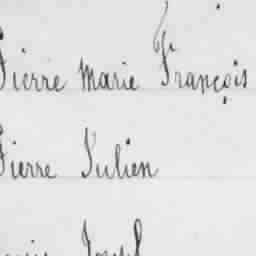 Pierre Marie François
Pierre Julien
Joseph